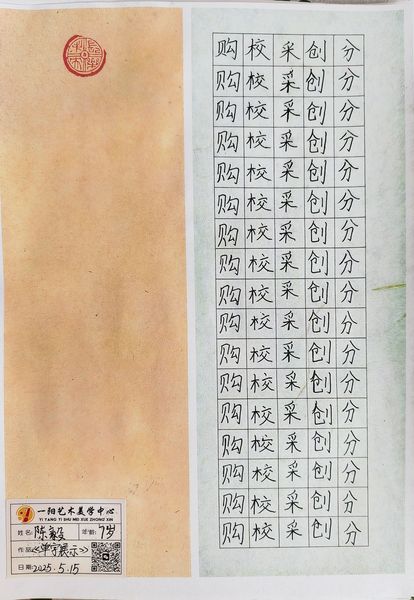 购校采创分
购校采创分
购校采创分
购校采创分
购校采创分
购校采创分
购校采创分
购校采创分
购校采创分
购校采创分
购校采创分
购校采创分
购校采创分
购校采创分
购校采创分
购校采创分
购校采创分
一阳艺术美学中心
YI YANG YI SHU MEI XUE ZHONG XIN
姓名:陈毅 年龄:7岁
作品:《单字展示》
日期:2025.5.15